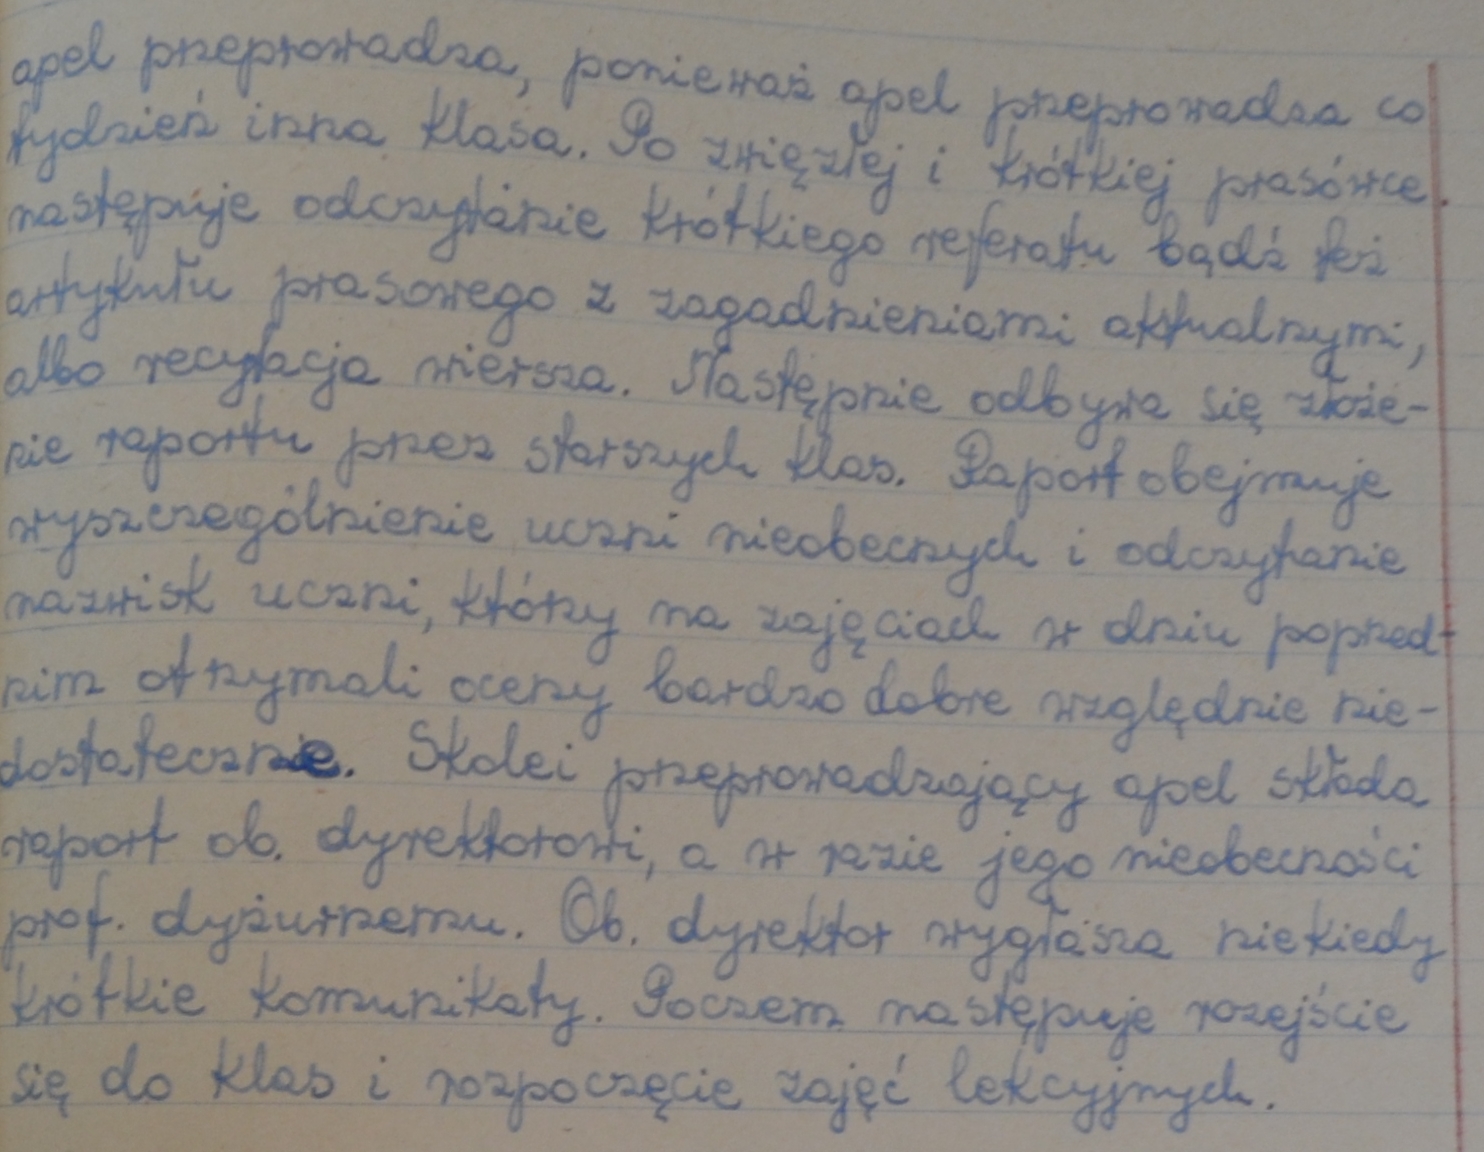 apel przeprowadza, ponieważ apel przeprowadza co
tydzień inna klasa. Po zwięzłej i krótkiej prasówce
następuje odczytanie krótkiego referatu bądź też
artykułu prasowego z zagadnieniami aktualnymi,
albo recytacja wiersza. Następnie odbywa się złoże-
nie raportu przez starszych klas. Raport obejmuje
wyszczególnienie uczni nieobecnych i odczytanie
nazwisk uczni, którzy na zajęciach w dniu poprzed-
nim otrzymali oceny bardzo dobre względnie nie-
dostatecznie. Skolei przeprowadzający apel składa
raport ob. dyrektorowi, a w razie jego nieobecności
prof. dyżurnemu. Ob. dyrektor wygłasza niekiedy
krótkie komunikaty. Poczem następuje rozejście
się do klas i rozpoczęcie zajęć lekcyjnych.